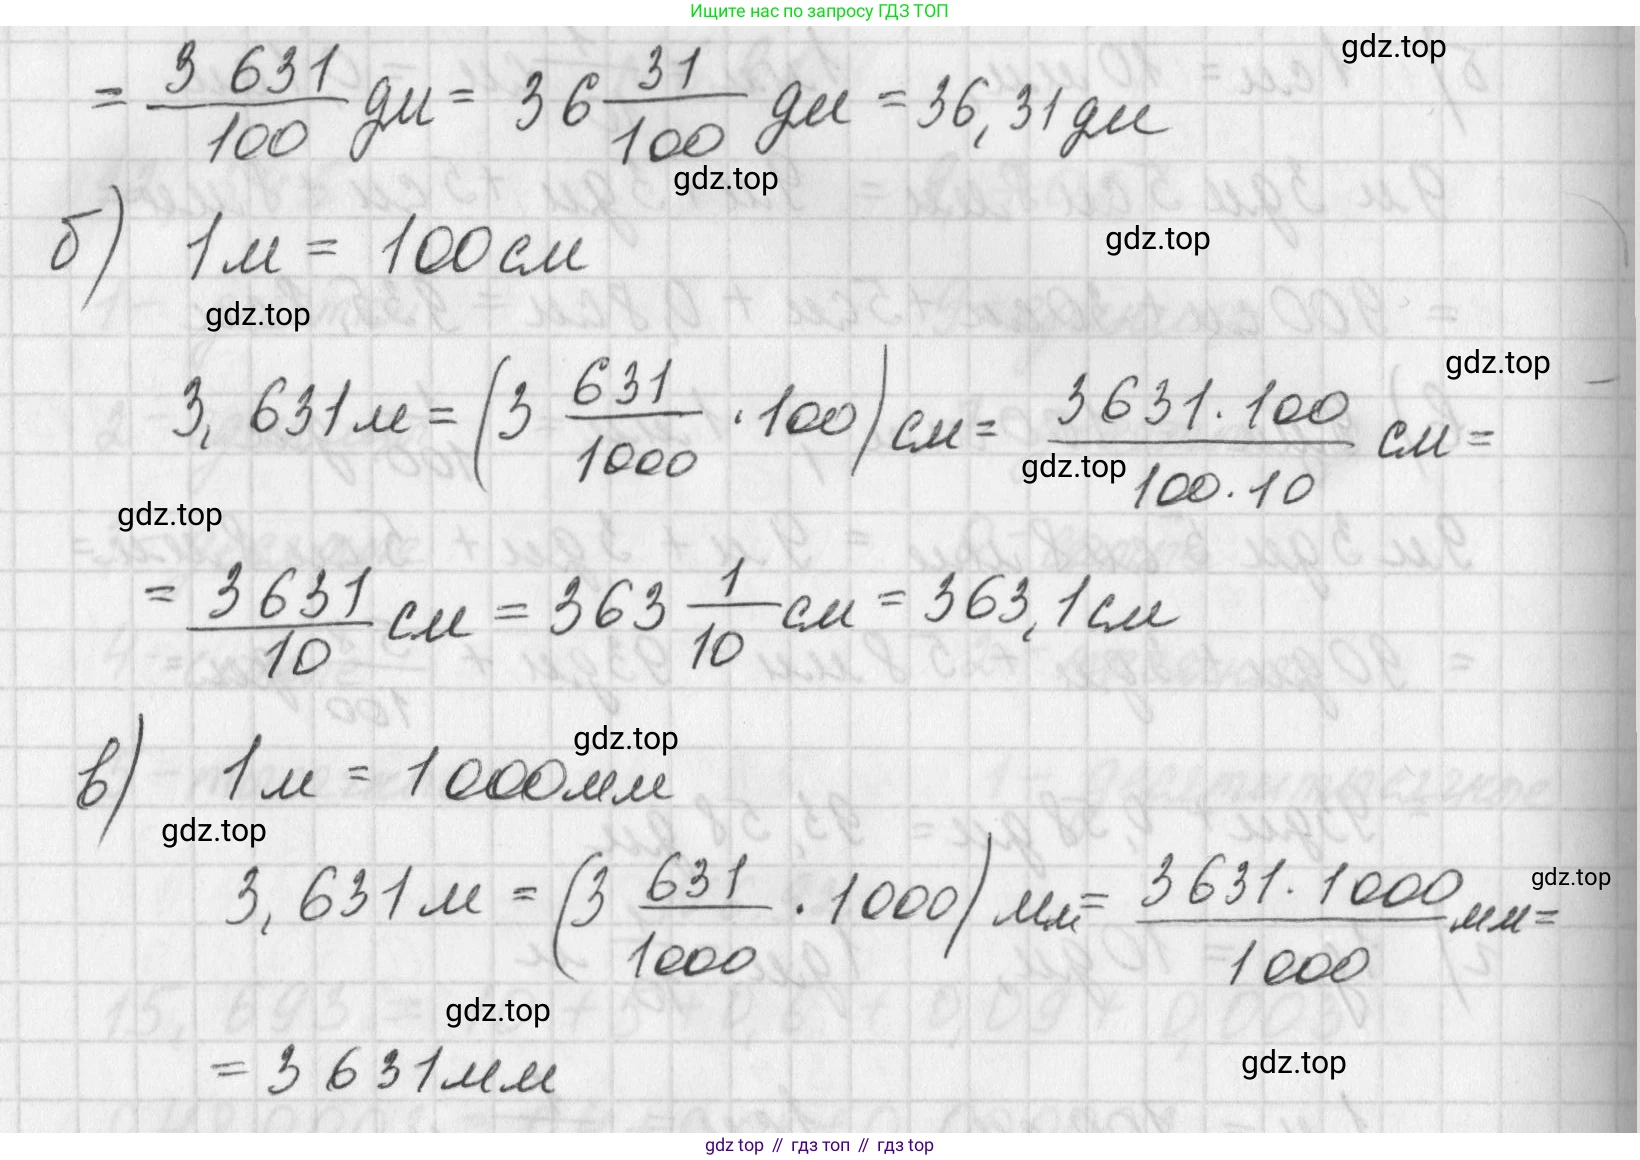 Ищите нас по запросу ГДЗ ТОП
gdz.top
= 3 631/100 дм = 36 31/100 дм = 36,31 дм
gdz.top
б) 1 м = 100 см
gdz.top
gdz.top
gdz.top
3,631 м = (3 631/1000 · 100) см = 3 631 · 100/100 · 10 см =
gdz.top
gdz.top
= 3 631/10 см = 363 1/10 см = 363,1 см
gdz.top
в) 1 м = 1 000 мм
gdz.top
gdz.top
3,631 м = (3 631/1000 · 1 000) мм = 3 631 · 1 000/1 000 мм =
gdz.top
= 3 631 мм
gdz.top
gdz top // гдз топ // гдз top